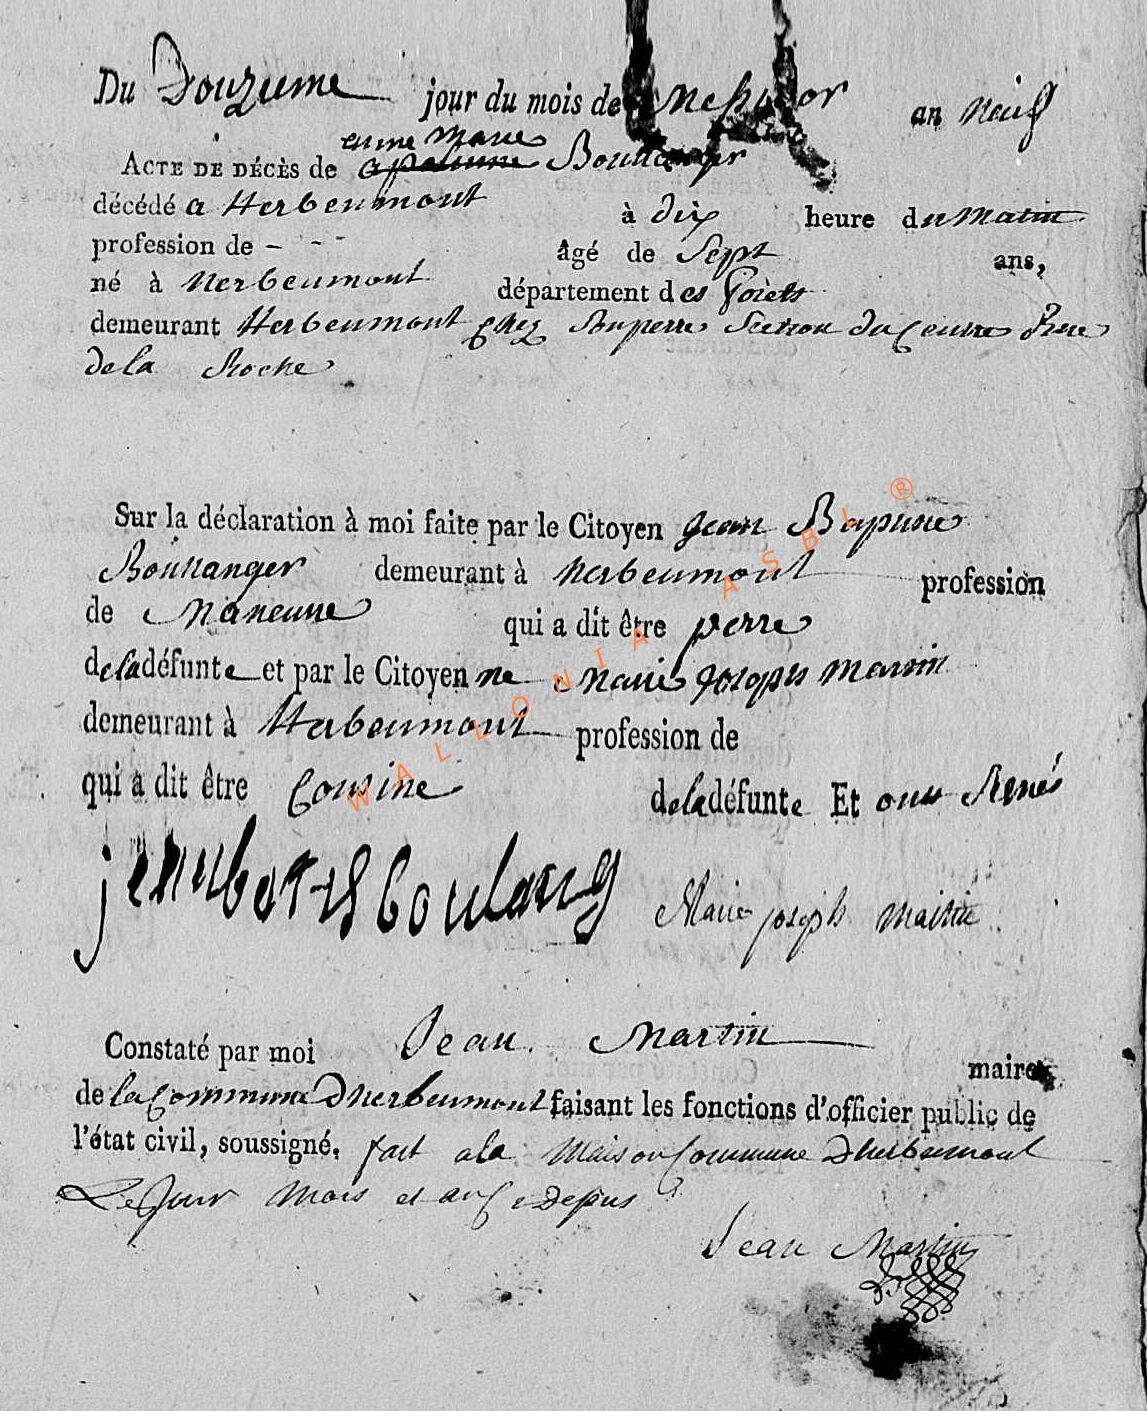 Du Douzieme jour du mois de Messidor an neuf
anne Marie
ACTE DE DÉCÈS de Boullanger
décédé a Herbeumont à dix heure du Matin
profession de - - - - âgé de Sept ans,
né à herbeumont département des forets
demeurant Herbeumont Chez Son perre Section du
de la Roche
Sur la déclaration à moi faite par le Citoyen jean Baptiste
Boullanger demeurant à herbeumont profession
de Maneuvre qui a dit être perre
de la défunte et par le Citoyenne Marie joseph Martin
demeurant à Herbeumont profession de
qui a dit être Cousine de la défunte Et ont Signés
jean batis boulang Marie joseph Martin
Constaté par moi Jean Martin maire
de la Commune D'herbeumont faisant les fonctions d'officier public de
l'état civil, soussigné. fait a la Maison Commune D'herbeumont
Le Jour Mois et an
Jean Martin
WALLONIA ASBL ®